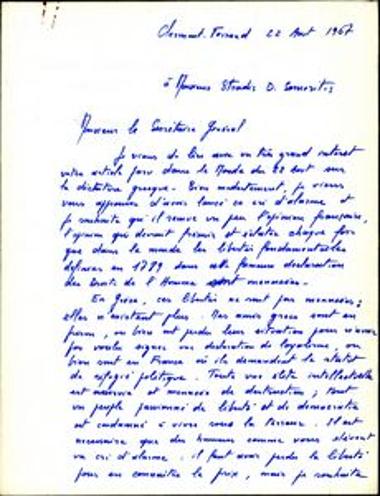 Clermont-Ferrand 22 Aout 1967
à Monsieur D.
Monsieur le Secrétaire Général
Je viens de lire avec un très grand interet
votre article paru dans le Monde du 22 aout sur
la dictature grecque. Bien modestement, je viens
vous d'avoir lancé ce cri d'alarme et
je souhaite qu'il remue un peu l'opinion française,
l'opinion qui devrait frémir et éclater chaque fois
que dans le monde les libertés fondamentales
définies en 1789 dans cette fameuse déclaration
des Droits de l'Homme sont menacées.
En Grèce, ces libertés ne sont pas menacées;
elles n'existent plus. Mes amis grecs sont en
prison, ou bien ont perdu leur situation pour n'avoir
pas voulu signer une déclaration de loyalisme, ou
bien sont en France où ils demandent le statut
de réfugié politique. Toute une élite intellectuelle
est et menacée de destruction; tout
un peuple passionné de liberté et de démocratie
est condamné à vivre sous la terreur. Il est
nécessaire que des hommes comme vous élèvent
un cri d'alarme. Il faut avoir perdu la liberté
pour en connaître le prix, mais je souhaite